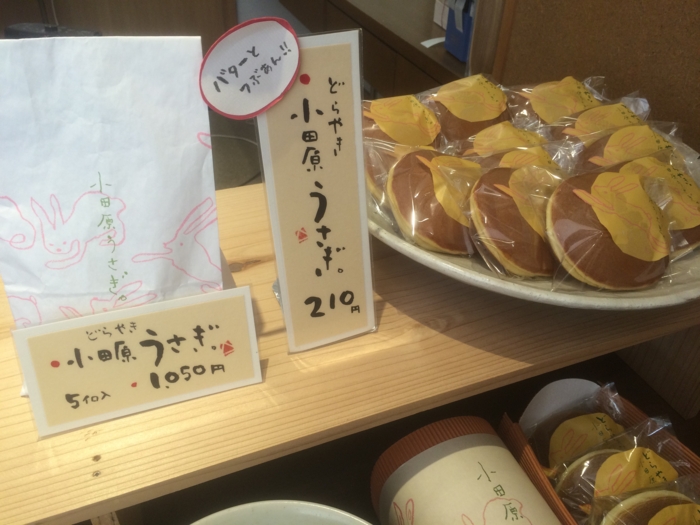 小田原うさぎ。
バターと
つぶあん!!
どらやき
小田原うさぎ。
210円
どらやき
小田原うさぎ。
5個入
1,050円
小田原